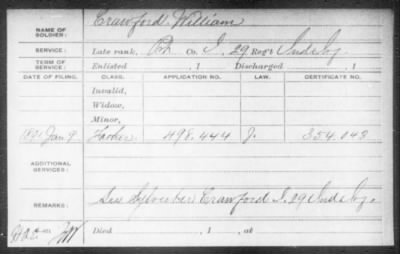 NAME OF SOLDIER: Crawford William
SERVICE: Late rank, Co. I, 29 Reg't Ind. Inf.
TERM OF SERVICE: Enlisted , 1 Discharged , 1
DATE OF FILING. CLASS. APPLICATION NO. LAW. CERTIFICATE NO.
Invalid,
Widow,
Minor,
1891 Jan 9 Father 498.444 J. 354.043
ADDITIONAL SERVICES:
REMARKS: See Sylvester Crawford I. 29 Ind Inf.
Died , 1 , at